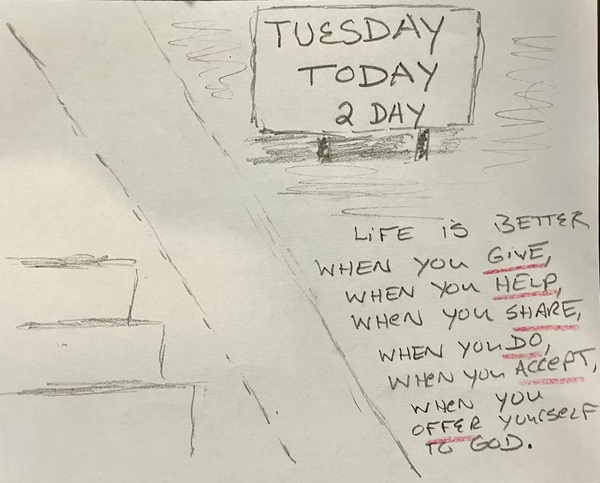 TUESDAY
TODAY
2 DAY
LIFE IS BETTER
WHEN YOU GIVE,
WHEN YOU HELP,
WHEN YOU SHARE,
WHEN YOU DO,
WHEN YOU ACCEPT,
WHEN YOU
OFFER YOURSELF
TO GOD.